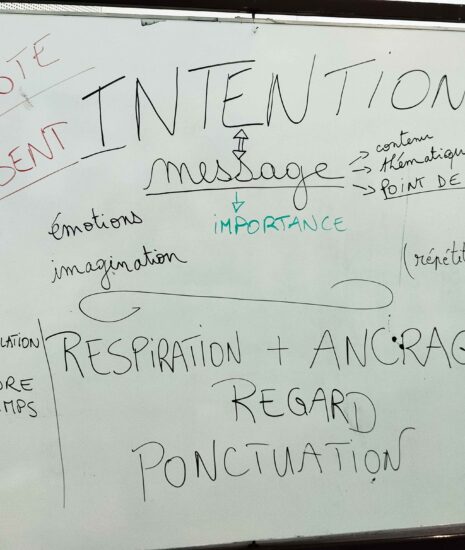 OTE
DENT
INTENTION
message
→ contenu
→ thématique
→ POINT DE
IMPORTANCE
émotions
imagination
(répétit
LATION
ORE
MPS
RESPIRATION + ANCRAG
REGARD
PONCTUATION